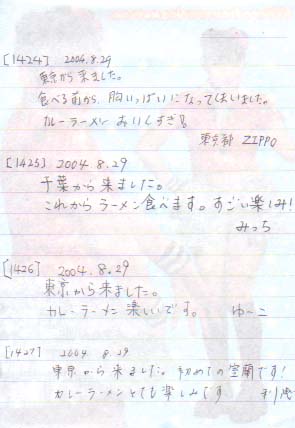 [1424] 2004.8.29
東京から来ました。
食べる前から、胸いっぱいになってしまいました。
カレーラーメン おいしすぎる
東京都 ZIPPO
[1425] 2004.8.29
千葉から来ました。
これからラーメン食べます。すごい楽しみ!
みっち
[1426] 2004.8.29
東京から来ました。
カレーラーメン 楽しいです。 ゆ〜こ
[1427] 2004 8.29
東京から来ました。初めての室蘭です!
カレーラーメンとても楽しみです